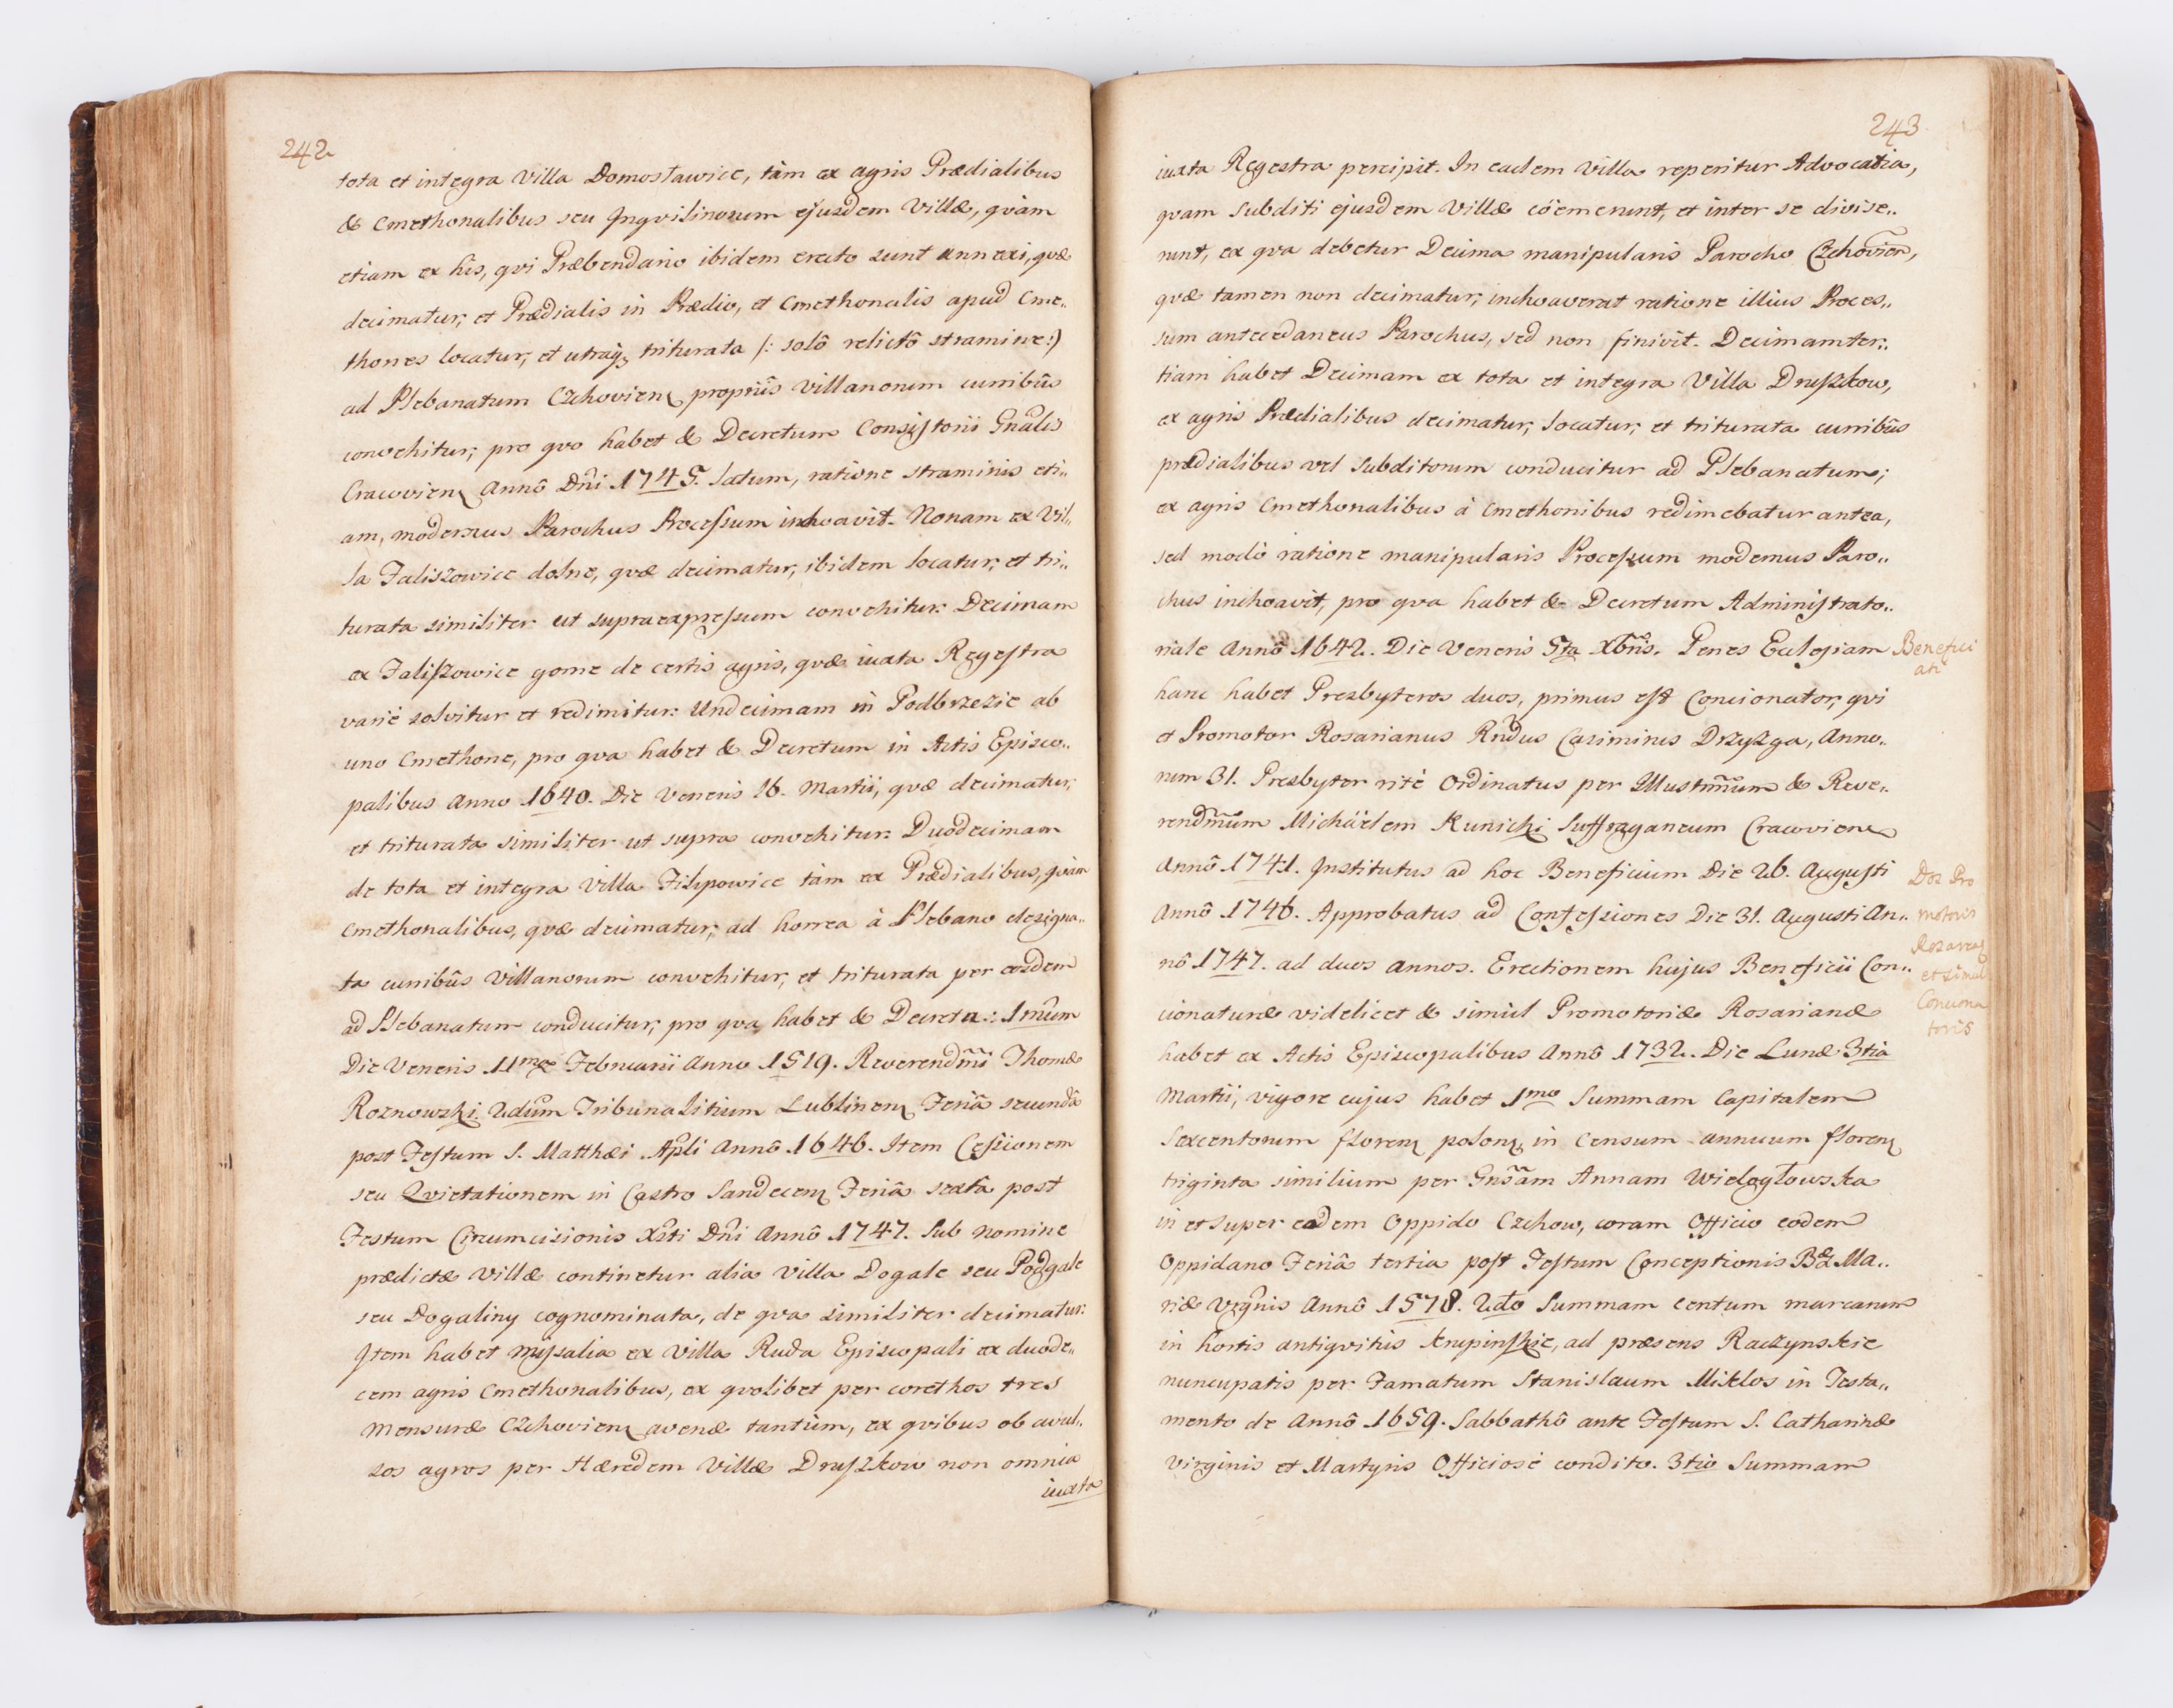 242
tota et integra Villa Domosławice, tàm ex agris Prædialibus
& Cmethonalibus seu Inqvilinorum ejusdem Villæ, qvàm
etiam ex his, qvi Præbendario ibidem erecto sunt annexi, qvæ
decimatur, et Prædialis in Prædio, et Cmethonalis apud Cme„
thones locatur, et utraq; triturata /: solô relictô stramine :/
ad Plebanatum Czchovien: propriis villanorum curribûs
convehitur, pro qvo habet & Decretum Consistorii Gñalis
Cracovien: Annô Dñi 1745. latum, ratione straminis eti„
am, modernus Parochus Processum inchoavit. Nonam ex Vil„
la Faliszowice dolne, qvæ decimatur, ibidem locatur, et tri„
turata similiter ut supraexpressum convehitur. Decimam
ex Faliszowice gorne de certis agris, qvæ iuxta Regestra
variè solvitur et redimitur. Undecimam in Podbrzezie ab
uno Cmethone, pro qva habet & Decretum in Actis Episco„
palibus Anno 1640. Die Veneris 16. Martii, qvæ decimatur,
et triturata similiter ut supra convehitur. Duodecimam
de tota et integra Villa Filipowice tàm ex Prædialibus, qvàm
Cmethonalibus, qvæ decimatur, ad horrea à Plebano designa„
ta curribûs villanorum convehitur, et triturata per eosdem
ad Plebanatum conducitur, pro qva habet & Decreta: 1mũm
Die Veneris 11mæ Februarii Anno 1519. Reverendm̃i Thomæ
Roznowski 2dũm Tribunalitium Lublinen: Feriâ secundâ
post Festum S. Matthæi Apli Annô 1646. Item Cessionem
seu Qvietationem in Castro Sandecen: Feriâ sextâ post
Festum Circumcisionis Xsti Dñi Annô 1747. Sub nomine
prædictæ Villæ continetur alia Villa Dogale seu Podgale
seu Dogaliny cognominata, de qva similiter decimatur.
Item habet Missalia ex Villa Ruda Episcopali ex duode„
cem agris Cmethonalibus, ex qvolibet per corethos tres
Mensuræ Czchovien: avenæ tantùm, ex qvibus ob avul„
sos agros per Hæredem Villæ Druszkow non omnia
iuxta
243
iuxta Regestra percipit. In eadem Villa reperitur Advocatia,
qvam Subditi ejusdem Villæ cöemerunt, et inter se divise„
runt, ex qva debetur Decima manipularis Parocho Czchovien̄,
qvæ tamen non decimatur, inchoaverat ratione illius Proces„
sum antecedaneus Parochus, sed non finivit. Decimamter„
tiam habet Decimam ex tota et integra Villa Druszkow,
ex agris Prædialibus decimatur, locatur, et triturata curribûs
prædialibus vel Subditorum conducitur ad Plebanatum;
ex agris Cmethonalibus à Cmethonibus redimebatur antea,
sed modò ratione manipularis Processum modernus Paro„
chus inchoavit, pro qva habet & Decretum Administrato„
riale Annô 1642. Die Veneris 5ta Xbris. Penes Ecclesiam
Benefici
ati
hanc habet Presbyteros duos, primus est Concionator, qvi
et Promotor Rosarianus Rñdus Casimirus Drzyzga, Anno„
rum 31. Presbyter ritè Ordinatus per Illustrm̃um & Reve„
rendm̃um Michäelem Kunicki Suffraganeum Cracovien:
Annô 1741. Institutus ad hoc Beneficium Die 26. Augusti
Annô 1746. Approbatus ad Confessiones Die 31. Augusti An„
nô 1747. ad duos annos. Erectionem hujus Beneficii Con„
Dos Pro
motoris
et simul
Conciona
toris
cionaturæ videlicet & simul Promotoriæ Rosarianæ
habet ex Actis Episcopalibus Annô 1732. Die Lunæ 3tia
Martii, vigore cujus habet 1mo Summam Capitalem
Sexcentorum floren: polon: in Censum annuum floren:
triginta similium per Gnsãm Annam Wielogłowska
in et super eodem Oppido Czchow, coram Officio eodem
Oppidano Feriâ tertia post Festum Conceptionis Bæ Ma„
riæ Vrgnis Annô 1578. 2do Summam centum marcarum
in hortis antiqvitùs Krupinskie, ad præsens Raczynskie
nuncupatis per Famatum Stanislaum Miklos in Testa„
mento de Annô 1659. Sabbathô ante Festum S. Catharinæ
Virginis et Martyris Officiosè condito. 3tio Summam